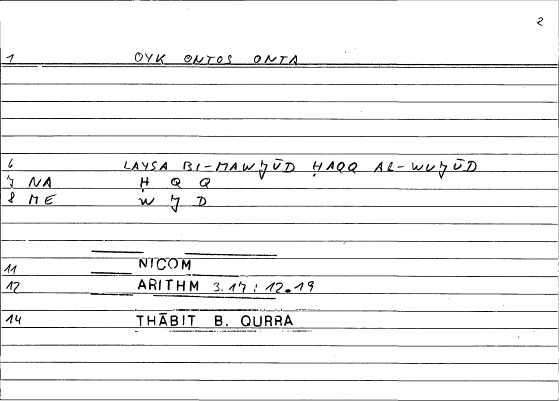 2
1 OYK ONTOS ONTA
6 LAYSA BI-MAWJŪD ḤAQQ AL-WUJŪD
7 NA Ḥ Q Q
8 ME W J D
11 NICOM
12 ARITHM 3.17 : 12.19
14 THĀBIT B. QURRA